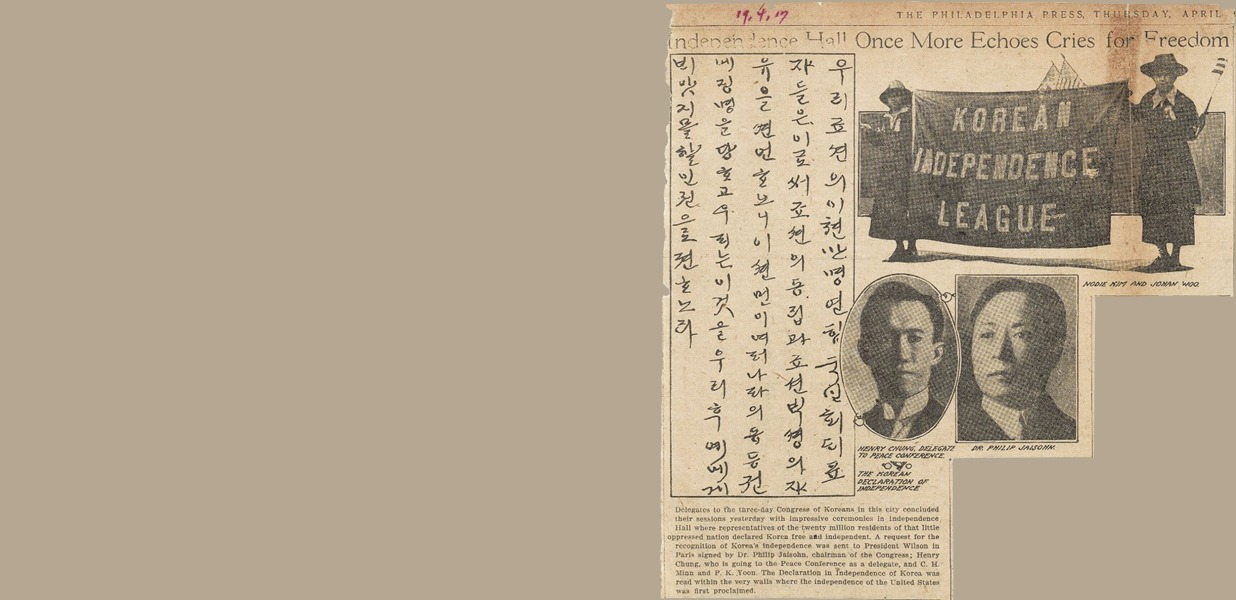 19.4.17
THE PHILADELPHIA PRESS, THURSDAY, APRIL
Independence Hall Once More Echoes Cries for Freedom
우리죠션의이쳔만명연합 회디표
쟈들은이로써죠션의독립과죠션박셩의자
유을션언ᄒᆞ노니이션언이여러나라의동등권
에징명을당ᄒᆞ고우리는이것을우리후예에게
지믈할인권으로젼ᄒᆞ노라
KOREAN
INDEPENDENCE
LEAGUE
NODIE KIM AND JOHAN WOO.
HENRY CHUNG, DELEGATE
TO PEACE CONFERENCE.
DR. PHILIP JAISOHN.
THE KOREAN
DECLARATION OF
INDEPENDENCE
Delegates to the three-day Congress of Koreans in this city concluded
their sessions yesterday with impressive ceremonies in Independence
Hall where representatives of the twenty million residents of that little
oppressed nation declared Korea free and independent. A request for the
recognition of Korea's independence was sent to President Wilson in
Paris signed by Dr. Philip Jaisohn, chairman of the Congress; Henry
Chung, who is going to the Peace Conference as a delegate, and C. H.
Mian and P. K. Yoon. The Declaration in Independence of Korea was
read within the very walls where the independence of the United States
was first proclaimed.